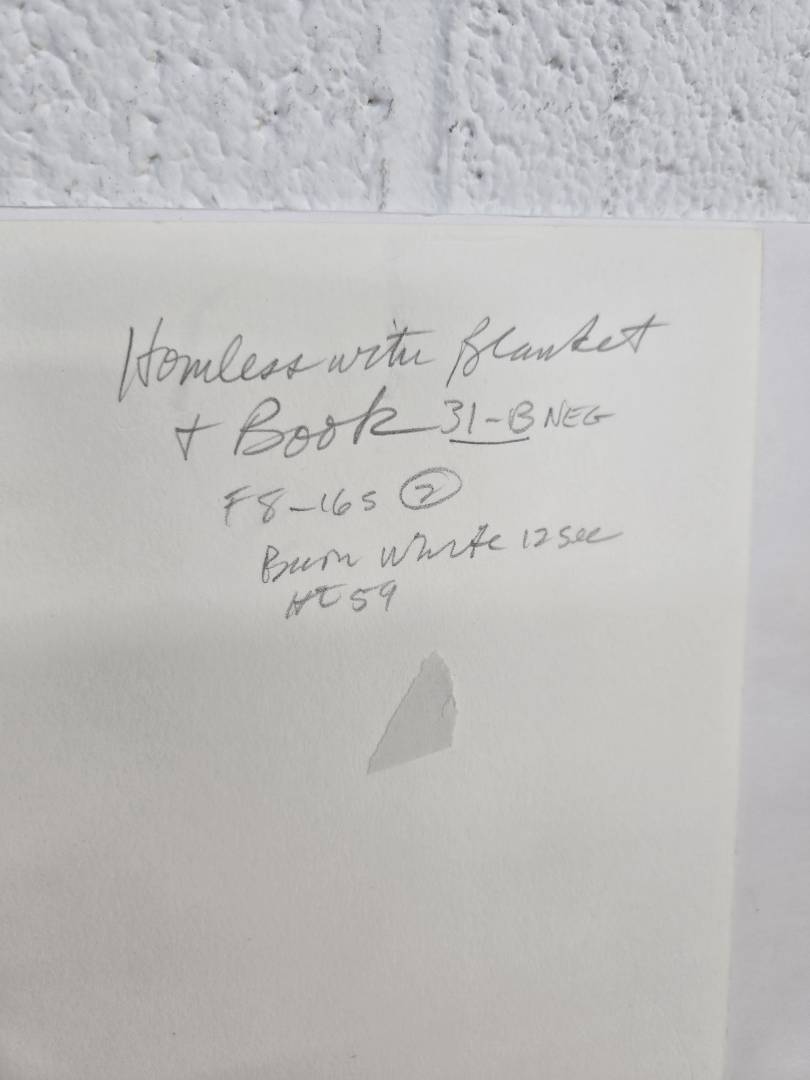 Homless with Blanket
+ Book 31-B NEG
F8-16s 2
Burn White 12 sec
HT 59